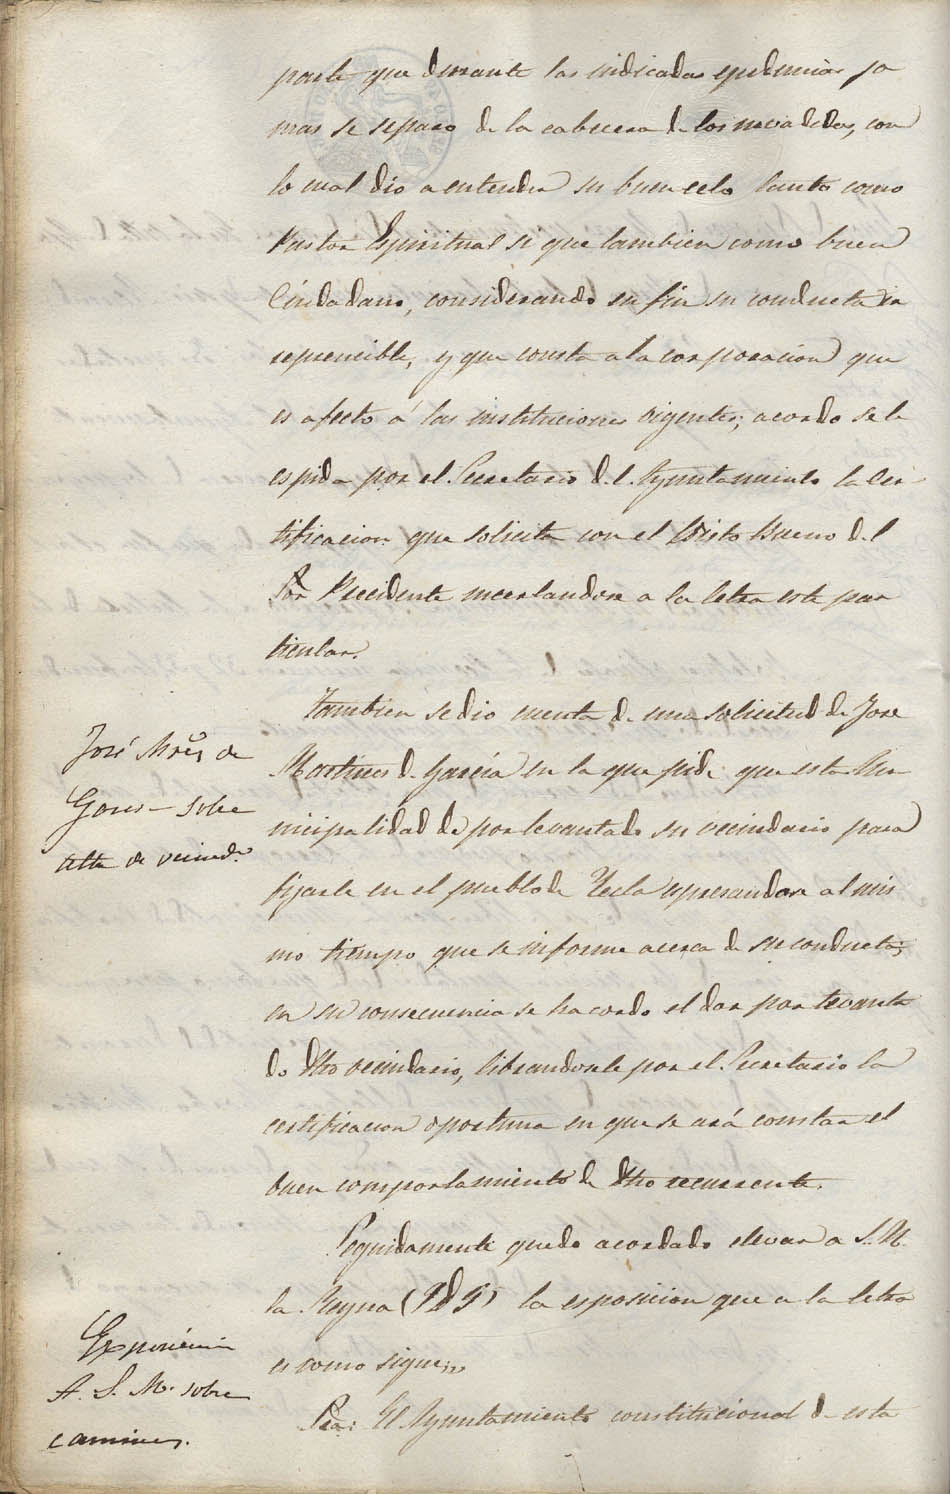 parte que durante las indicadas epidemias ja
mas se separo de la cabecera de los invadidos, con
lo cual dio a entender su buen celo tanto como
Pastor Espiritual si que tambien como buen
Ciudadano, considerando en fin su conducta ir
reprencible, y que consta a la corporacion que
es afecto á las instituciones vigentes; acordo se le
espida por el Secretario del Ayuntamiento la Cer
tificacion que solicita con el Visto Bueno del
Sor Precidente incertandose a la letra este par
ticular.
Tambien se dio cuenta de una solicitud de Jose
Martines de Garcia en la que pide que esta Mu
nicipalidad dé por levantado su vecindario para
fijarle en el pueblo de Yecla espresandose al mis
mo tiempo que se informe acerca de su conducta;
en su consecuencia se ha cordo el dar por levanta
do dho vecindario, librandosele por el Secretario la
certificacion oportuna en que se ará constar el
buen comportamiento de dho recurrente.
Seguidamente quedo acordado elevar a S. M.
la Reyna (Q D G) la esposicion que a la letra
es como sigue,,,
Sra: El Ayuntamiento constitucional de esta
José Mrēs de
Garcia sobre
alta de vecind.
Exposicion
A. S. M. sobre
caminos.